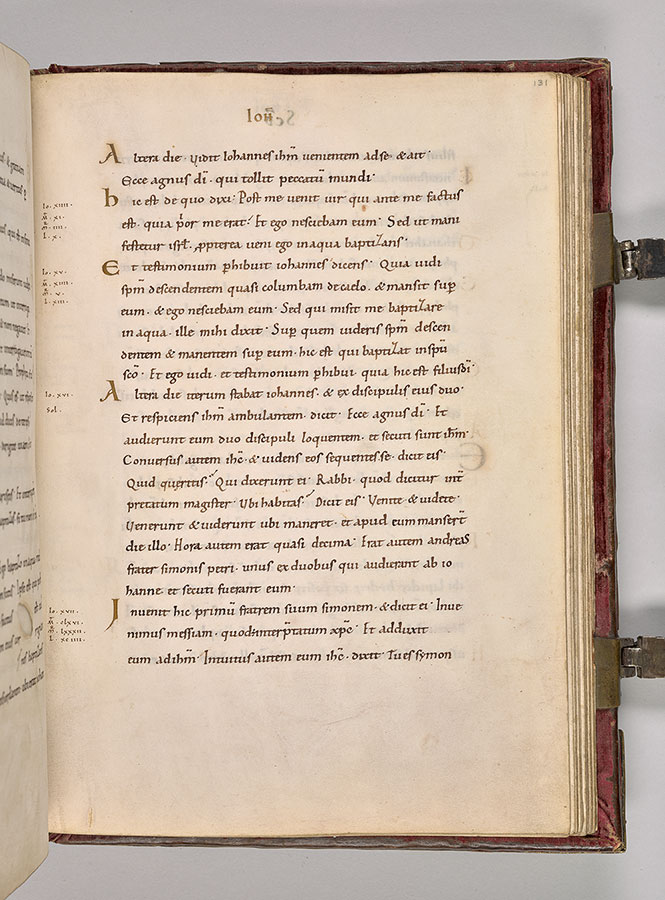 131
Ioh̄
Altera die · vidit Iohannes ihm̄ venientem adse · & ait ·
Ecce agnus dī · qui tollit peccatū mundi ·
hic est de quo dixi · Post me venit vir qui ante me factus
est · quia p̄or me erat · Et ego nesciebam eum · Sed ut mani
festetur isrł · ꝓpterea veni ego inaqua baptizans ·
Et testimonium ꝑhibuit iohannes dicens · Quia vidi
spm̄ descendentem quasi columbam decaelo · & mansit suꝑ
eum · & ego nesciebam eum · Sed qui misit me baptizare
in aqua · ille mihi dixit · Suꝑ quem videris spm̄ descen
dentem & manentem suꝑ eum · hic est qui baptizat inspū
scō · Et ego vidi · et testimonium ꝑhibui · quia hic est filiusdī ·
Altera die iterum stabat iohannes · & ex discipulis eius duo ·
Et respiciens ihm̄ ambulantem · dicit · Ecce agnus dī · Et
audierunt eum duo discipuli loquentem · et secuti sunt ihm̄ ·
Conversus autem ihc̄ · & videns eos sequentesse · dicit eis ·
Quid queritis · Qui dixerunt ei · Rabbi · quod dicitur int̄
pretatum magister · Vbi habitas · Dicit eis · Venite & videte ·
Venerunt & viderunt ubi maneret · et apud eum manser̄t
die illo · Hora autem erat quasi decima · Erat autem andreas
frater simonis petri · unus ex duobus qui audierant ab io
hanne · et secuti fuerant eum ·
Invenit hic primū fratrem suum simonem · & dicit ei · Inve
nimus messiam · quod interp̄tatum xpc̄ · Et adduxit
eum adihm̄ · Intuitus autem eum ihc̄ · dixit · Tu es symon
Io. xiiii.
M̄. xi.
L. x.
Io. xv.
M̄. xiiii.
M̄. v.
L. xiii.
Io. xvi.
Sol.
Io. xvii.
M̄. clxvi.
M̄. lxxxii.
L. xciiii.